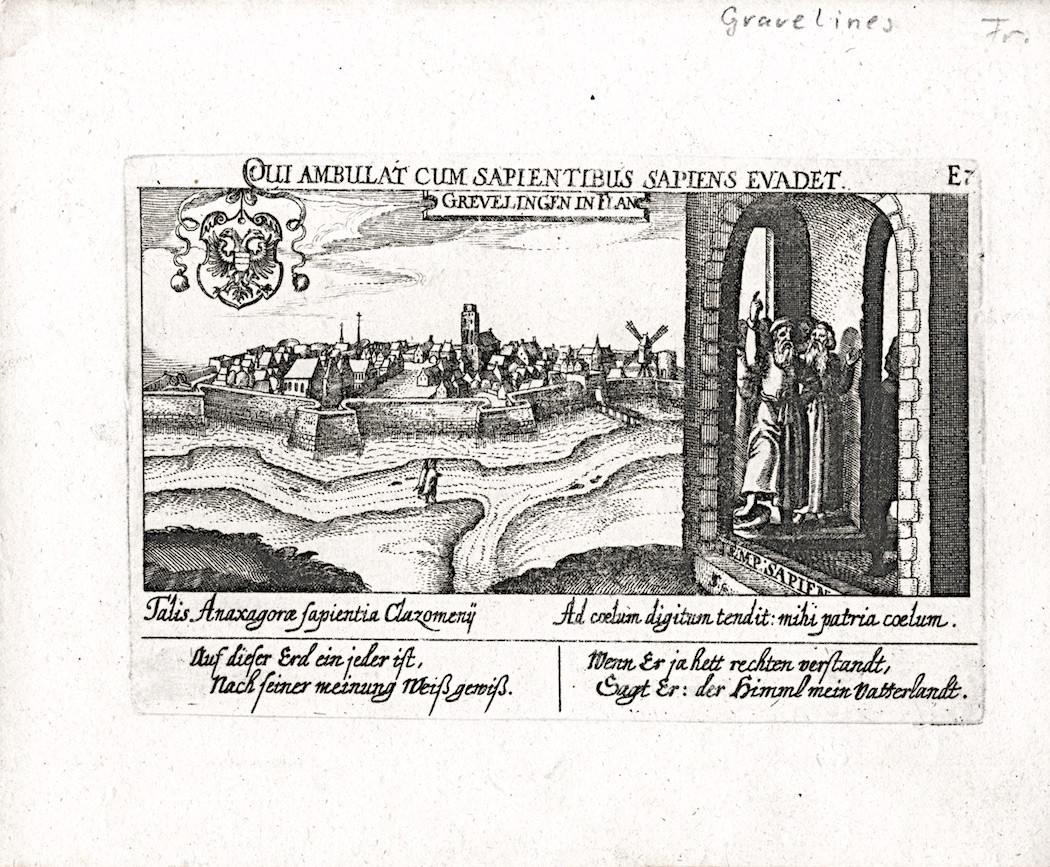 Gravelines
Fr.
QUI AMBULAT CUM SAPIENTIBUS SAPIENS EVADET.
E7
GREVELINGEN IN FLAN
TEMP. SAPIEN
Talis Anaxagoræ sapientia Clazomenij
Ad cœlum digitum tendit: mihi patria cœlum.
Auf dieser Erd ein jeder ist,
Nach seiner meinung Weiß gewiß.
Wenn Er ja hett rechten verstandt,
Sagt Er: der Himml mein Vatterlandt.